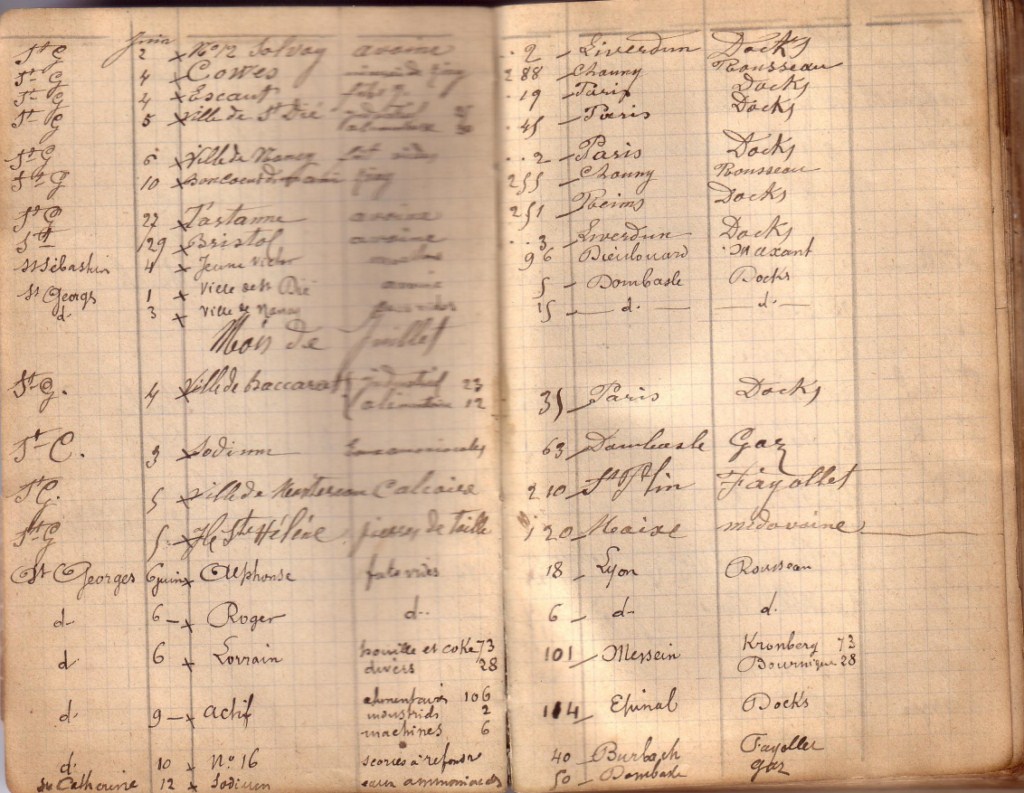 Juin
St G 2 × No 12 Solvay avoine .. 2 Liverdun Docks
St G 4 × Cowes 288 Chauny Rousseau
St G 4 × Escaut .. 19 Paris Docks
St G 5 × Ville de St Dié industriel .. 45 Paris Docks
alimentaire 20
St G 6 × Ville de Nancy fût vides .. 2 Paris Docks
St G 10 × 255 Chauny Rousseau
St G 27 × avoine 251 Reims Docks
St G 129 × Bristol avoine .. 3 Liverdun Docks
St Sébastien 4 × Jeune Victor avoine 96 Dieulouard Maxant
St Georges 1 × Ville de St Dié avoine 5 Dombasle Docks
d. 3 × Ville de Nancy 15 — d. — — d. —
Mois de Juillet
St G. 4 × Ville de Baccarat industriel 23 35 Paris Docks
alimentaire 12
St C. 3 × 63 Dombasle Gaz
St G. 5 × Ville de Montereau Calcaire 210 St Phlin Fayollet
St G 5 × Ile Ste Hélène pierres de taille 120 Maixe
St Georges 6 juin × Alphonse futs vides 18 Lyon Rousseau
d. 6 — × Roger d. 6 d. d.
d 6 × Lorrain houille et coke 73 101 Messein Kronberg 73
divers 28 Bournique 28
d. 9 — × Actif alimentaires 106 114 Epinal Docks
industriels 2
machines 6
d. 10 × No 16 scories à refondre 40 Burbach Fayollet
Ste Catherine 12 × eaux ammoniacales 50 Dombasle gaz